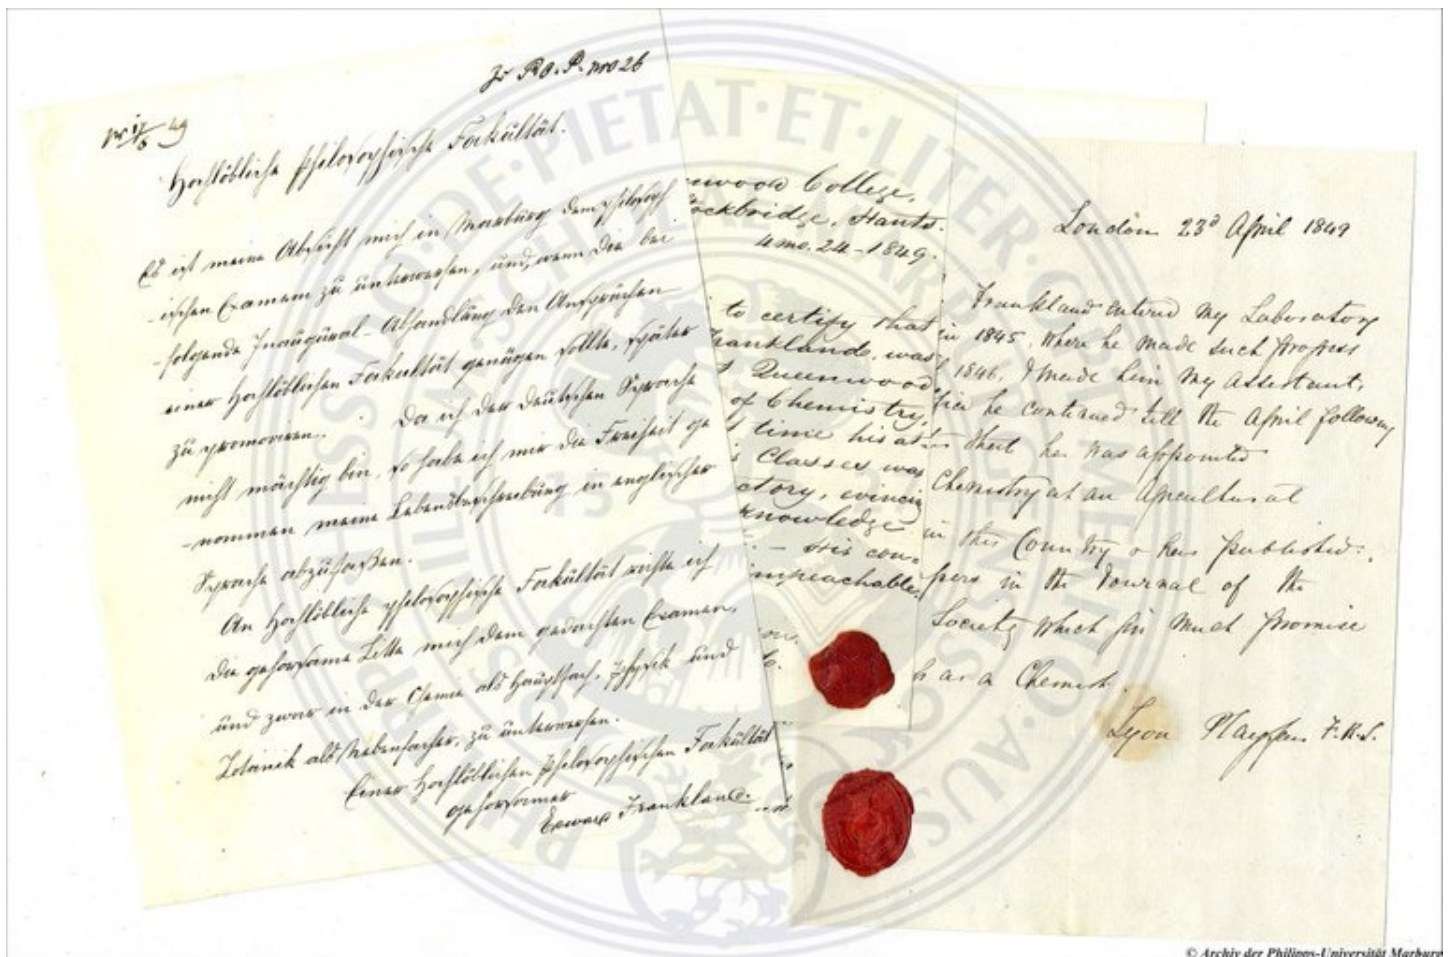 Zr R.O.P. nro 26
49
Hochlöbliche philosophische Fakultät.
Es ist meine Absicht mich in Marburg dem philosoph
-ischen Examen zu unterwerfen, und, wenn die bei
-folgende Inaugural-Abhandlung den Ansprüchen
einer Hochlöblichen Fakultät genügen sollte, später
zu promoviren. Da ich der deutschen Sprache
nicht mächtig bin, so habe ich mir die Freiheit ge
-nommen meine Lebensbeschreibung in englischer
Sprache abzufassen.
An Hochlöbliche philosophische Fakultät richte ich
die gehorsame Bitte mich dem gedachten Examen,
und zwar in der Chemie als Hauptfach, Physik und
Botanik als Nebenfächer, zu unterwerfen.
Einer Hochlöblichen Philosophischen Fakultät
gehorsamer
Edward Frankland.
nwood College,
ockbridge, Hants.
4 mo. 24 - 1849.
to certify that
rankland, was
Queenwood
of Chemistry,
time his at
Classes was
ctory, evincin
knowledge
- His con-
mpeachable.
London 23d April 1849
Frankland entered my Laboratory
in 1845. Where he made such progress
1846. I made him my assistant.
he continued till the April following
that he was appointed
Chemistry at an Agricultural
in this Country & has published
pers in the Journal of the
Society which give much promise
as a Chemist.
Lyon Playfair F.R.S.
© Archiv der Philipps-Universität Marburg